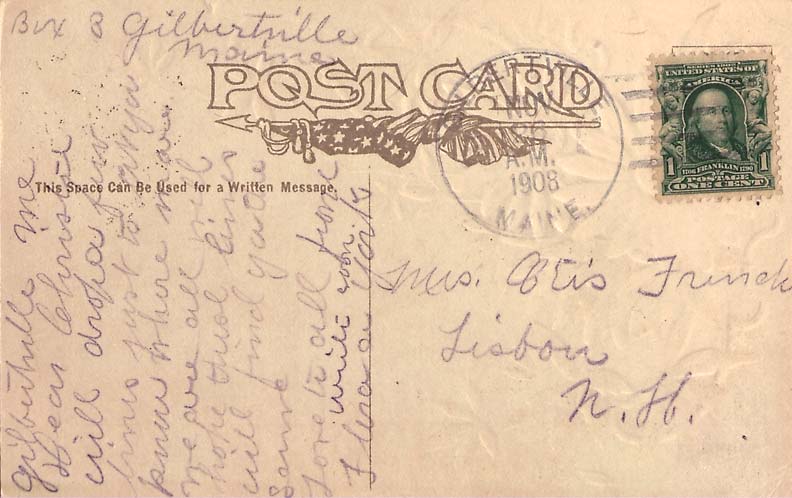 Box 3 Gilbertville
Maine
POST CARD
CANTON
NOV
26
A.M.
1908
MAINE.
SERIES 1902
UNITED STATES OF
AMERICA
1 1706 FRANKLIN 1790 1
POSTAGE
ONE CENT
This Space Can Be Used for a Written Message.
Gilbertville Me
Dear
will drop a few
lines just to let you
know where we are
we are all well
hope these lines
will find you the
same
Love to all from
Flora
write soon
Mrs. Otis French
Lisbon
N. H.